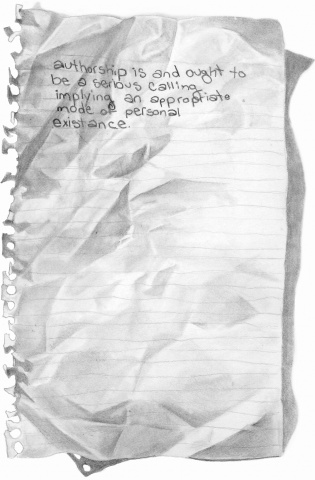 authorship is and ought to
be a serious calling
implying an appropriate
mode of personal
existance.